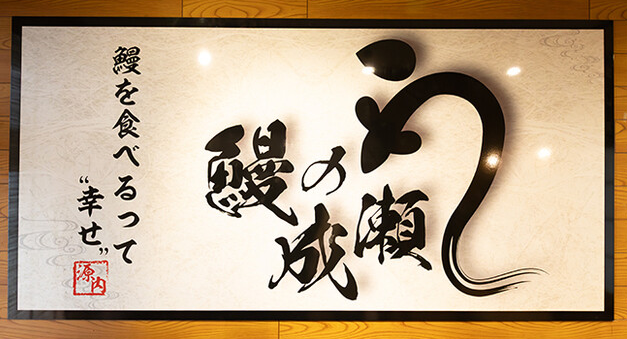 う
鰻の成瀬
鰻を食べるって
“幸せ”
源内